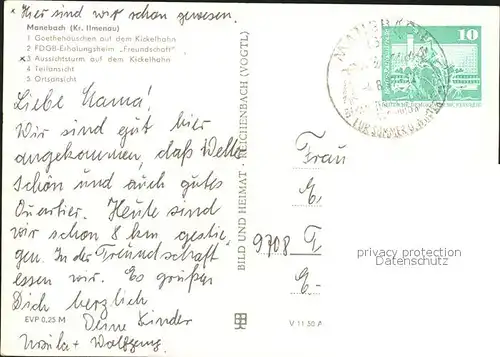 x Hier sind wir schon gewesen.
Manebach (Kr. Ilmenau)
1 Goethehäuschen auf dem Kickelhahn
2 FDGB-Erholungsheim „Freundschaft"
x 3 Aussichtsturm auf dem Kickelhahn
4 Teilansicht
5 Ortsansicht
Liebe Mama!
Wir sind gut hier
angekommen, daß Wetter
schön und auch gutes
Quartier. Heute sind
wir schon 8 km gestie-
gen. In der Freundschaft
essen wir. Es grüßen
Dich herzlich
Deine Kinder
Ursula + Wolfgang.
EVP 0,25 M
BILD UND HEIMAT · REICHENBACH (VOGTL)
MANEBACH
10
Frau
E.
9708 T
E-
privacy protection
watermark
V 11 50 A